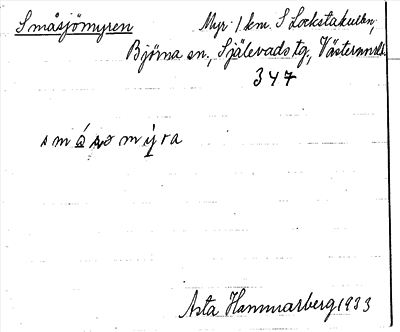 Småsjömyren Myr 1 km. S Lockstakullen,
Björna sn., Själevads tg., Västernorrl.
347
smásomýra
Asta Hammarberg 1933